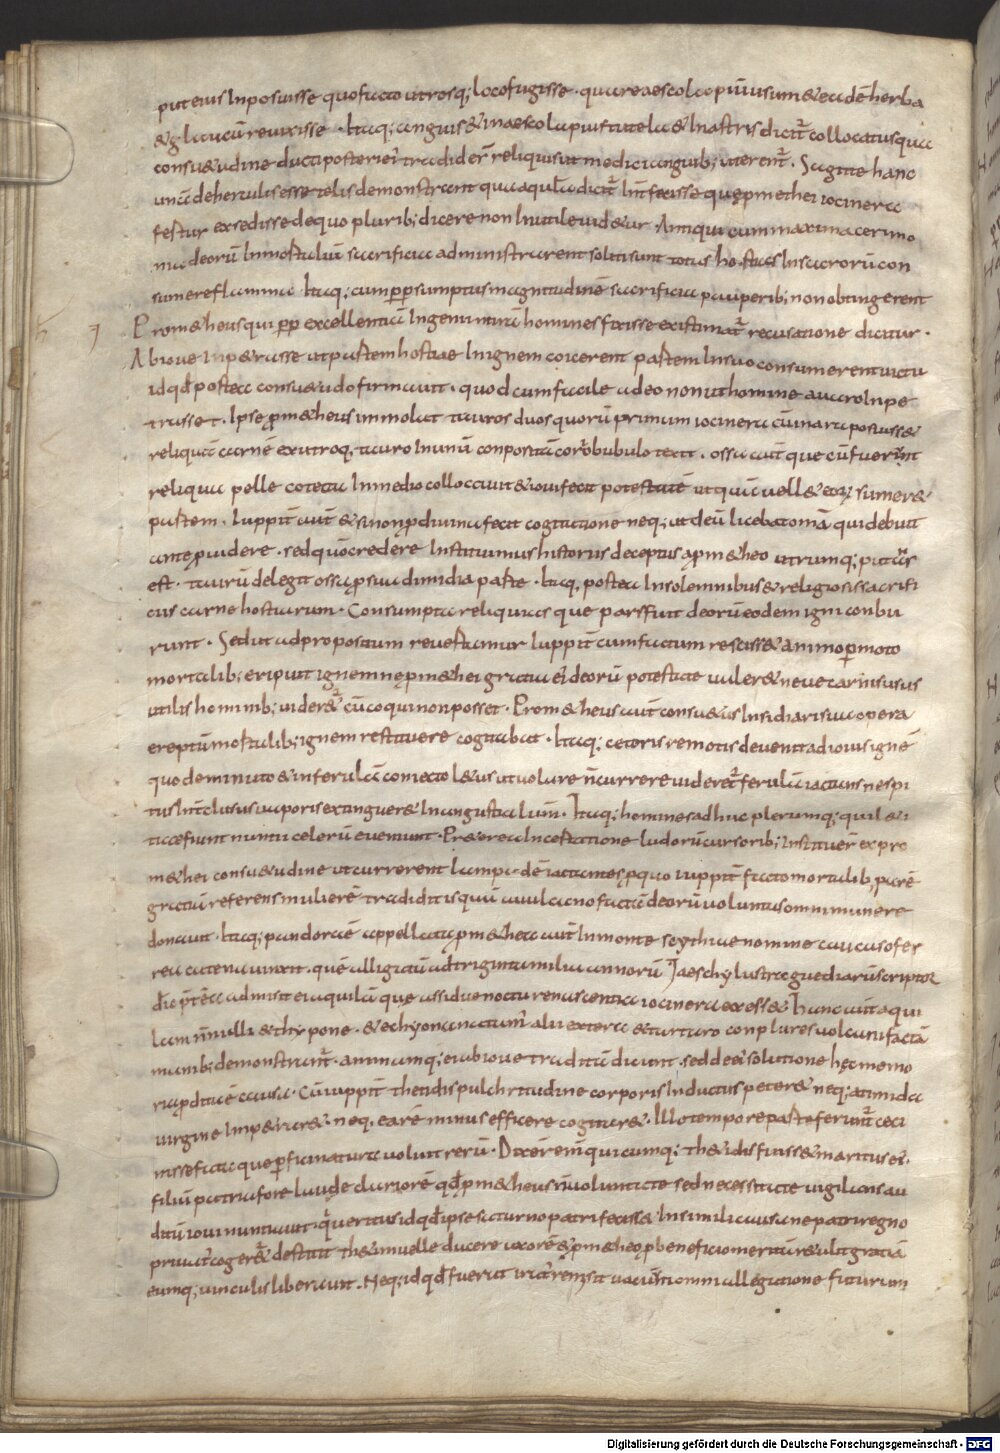 put eius Inposuisse quofacto utrosq; locofugisse · quare aescolapiu usum & eade herba
& glaucu reuixisse · Itaq; anguis & inaescolapii tutela & Inastris dicit collocatus qua
consu&udine ducti posterier tradider reliquis ut medici anguib; uterent · Sagitte hanc
una de herculis esse telis demonstrant qua aquila dicit Interfecisse quę pm&hei iocinera
fertur exedisse de quo plurib; dicere non Inutile uid&ur · Antiqui cum maxima cerimo
nia deoru Inmortaliu sacrificia administrarent soliti sunt totas hostias Insacroru con
sumere flamma Itaq; cum pp sumptus magnitudine sacrificia pauperib; non obtingerent
Prom&heus qui pp excellentia Ingenii mira homines fixisse existimat recusatione dicitur ·
Abioue Inp&rasse ut partem hostiae Inignem coicerent partem Insuo consumerent uictu
idqd postea consu&udo firmauit · quod cum facile a deo non ut homine auaro Inpe
trasset · Ipse pm&heus immolat tauros duos quoru primum iocinera cum ara posuiss&
reliqua carne ex utroq, tauro Inunu conposita corio bubulo texit · ossa aut que cu fuerunt
reliqua pelle cotecta Inmedio collocauit & ioui fecit potestate ut qua uell& eoru sumer&
partem · Iuppit aut & si non p diuina fecit cogitatione neq; ut deu licebat oma qui debuit
ante puidere · sed quo credere Instituimus historiis deceptus a pm&heo utrumq; putans
est · tauru delegit ossa p sua dimidia parte · Itaq, postea Insolemnibus & religiosis sacrifi
ciis carne hostiarum · Consumpta reliquias que pars fuit deoru eodem igni conbu
runt · Sed ut ad propositum reuertamur Iuppit cum factum resciss& animo pmoto
mortalib; eripuit ignem ne pm&hei gratia ei deoru potestate ualer& neue carnis usus
utilis hominib; uider& cu coqui non posset · Prom&heus aut consu&us Insidiari sua opera
ereptu mortalib; ignem restituere cogitabat · Itaq; ceteris remotis deuenit ad iouis igne
quo deminuto & inferula coniecto l&us ut uolare n currere uideret ferula iactans ne spi
tus Interclusus uaporis extinguer& Inangustia lum · Itaq; homines adhuc plerumq; qui l&i
tiae fiunt nuntii celeru eueniunt · Pr&erea Incertatione ludoru cursorib; Instituer ex pro
m&hei consu&udine ut currerent lampade iactantes p quo iuppit facto mortalib, pare
gratia referens muliere tradidit is qua a uulcano facta deoru uoluntas omni munere
donauit · Itaq; pandora e appellata pm&hea aut Inmonte scythiae nomine caucaso fer
rea catena uinxit · que alligatu ad triginta milia annoru aeschylus tragoediaru scriptor
dic ptea admisit ei aquila que assidue noctu renascentia iocinera exess& hanc aut aqui
lam nnulli & thypone · & echyona natam alii ex terra & tartaro conplures uolcani facta
manib; demonstrant · animamq; ei ab ioue tradita dicunt · sed de ei solutione hęc memo
riae pdita e causa · Cu iuppit thetidis pulchritudine corporis Inductus peter& neq; a timida
uirgine Imp&rar& · neq, ea re minus efficere cogitar& · Illo tempore parcae ferunt ceci
nisse fata que pfici natura uoluit reru · Dixer eni quicumq; th&idis fuiss& maritus ei ·
filiu patria fore laude clariore qd pm&heus n uoluntate sed necessitate uigilans au
ditu ioui nuntiauit · q ueritus id qd ipse saturno patri fecisset In simili causa ne patri regno
priuat coger& destitit th&in uelle ducere uxore & pm&heo p beneficio merita r&ulit gratia
eumq; uinculis liberauit · Neq; id qd fuerat iurat remisit uacuu omni allegatione futurum
Digitalisierung gefördert durch die Deutsche Forschungsgemeinschaft - DFG